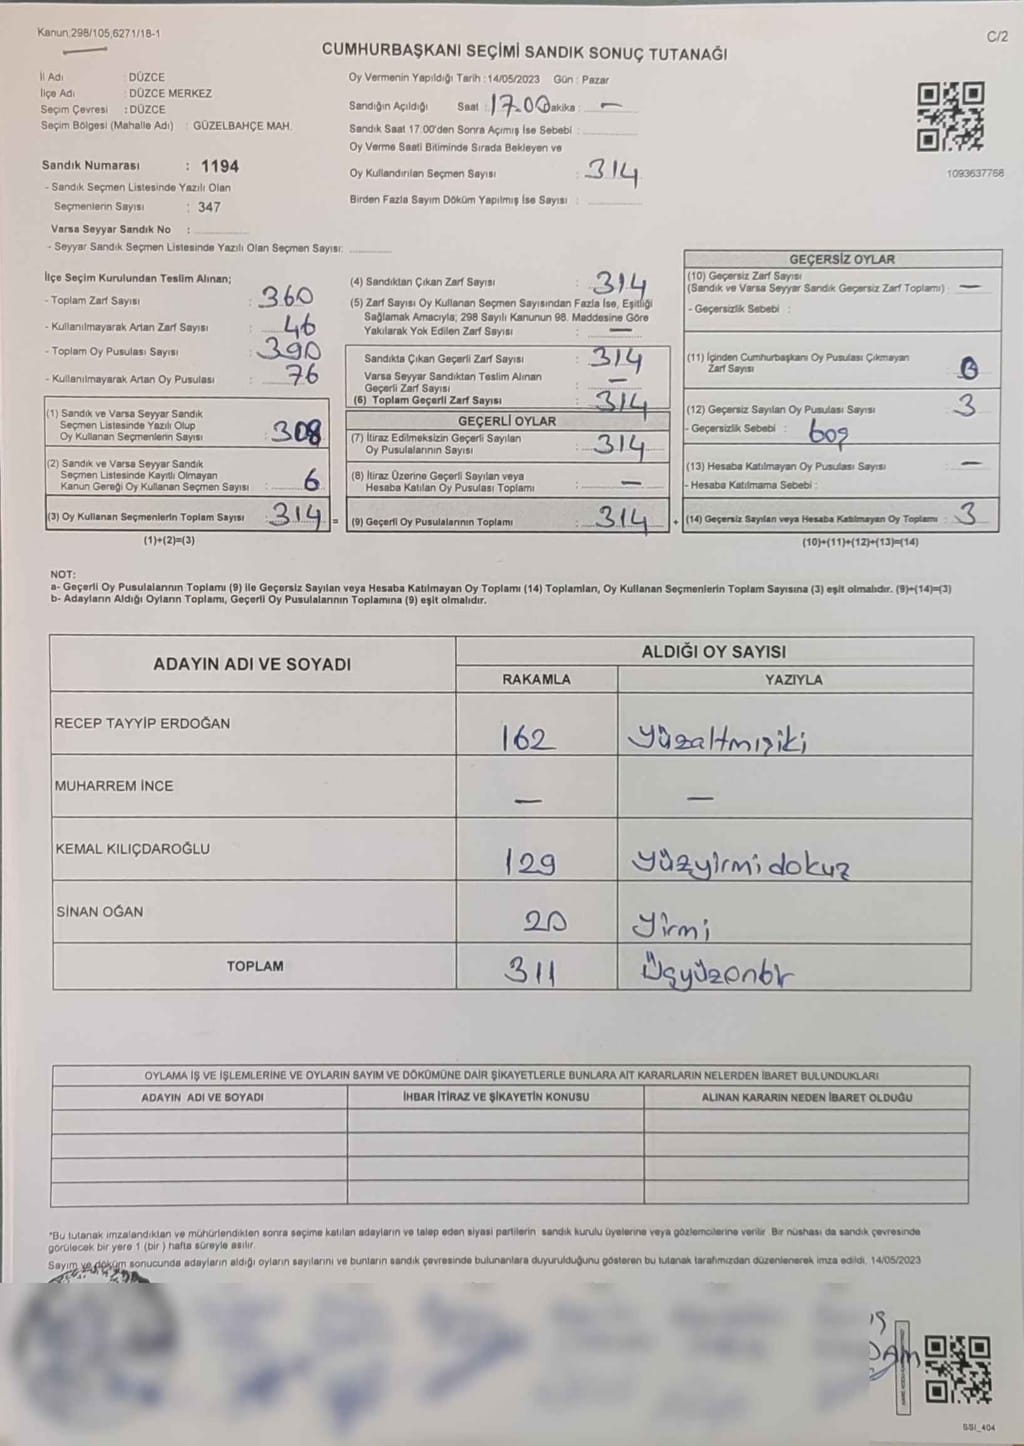 Kanun:298/105,6271/18-1
C/2
CUMHURBAŞKANI SEÇİMİ SANDIK SONUÇ TUTANAĞI
İl Adı : DÜZCE
İlçe Adı : DÜZCE MERKEZ
Seçim Çevresi : DÜZCE
Seçim Bölgesi (Mahalle Adı) : GÜZELBAHÇE MAH.
Sandık Numarası : 1194
- Sandık Seçmen Listesinde Yazılı Olan
Seçmenlerin Sayısı : 347
Varsa Seyyar Sandık No :
- Seyyar Sandık Seçmen Listesinde Yazılı Olan Seçmen Sayısı:
Oy Vermenin Yapıldığı Tarih : 14/05/2023 Gün : Pazar
Sandığın Açıldığı Saat : 17.00 Dakika : —
Sandık Saat 17:00'den Sonra Açımış İse Sebebi :
Oy Verme Saati Bitiminde Sırada Bekleyen ve
Oy Kullandırılan Seçmen Sayısı : 314
Birden Fazla Sayım Döküm Yapılmış İse Sayısı :
1093637768
İlçe Seçim Kurulundan Teslim Alınan;
- Toplam Zarf Sayısı : 360
- Kullanılmayarak Artan Zarf Sayısı : 46
- Toplam Oy Pusulası Sayısı : 390
- Kullanılmayarak Artan Oy Pusulası : 76
(1) Sandık ve Varsa Seyyar Sandık
Seçmen Listesinde Yazılı Olup
Oy Kullanan Seçmenlerin Sayısı : 308
(2) Sandık ve Varsa Seyyar Sandık
Seçmen Listesinde Kayıtlı Olmayan
Kanun Gereği Oy Kullanan Seçmen Sayısı : 6
(3) Oy Kullanan Seçmenlerin Toplam Sayısı : 314 =
(1)+(2)=(3)
(4) Sandıktan Çıkan Zarf Sayısı : 314
(5) Zarf Sayısı Oy Kullanan Seçmen Sayısından Fazla İse, Eşitliği
Sağlamak Amacıyla; 298 Sayılı Kanunun 98. Maddesine Göre
Yakılarak Yok Edilen Zarf Sayısı : —
Sandıkta Çıkan Geçerli Zarf Sayısı : 314
Varsa Seyyar Sandıktan Teslim Alınan
Geçerli Zarf Sayısı : —
(6) Toplam Geçerli Zarf Sayısı : 314
GEÇERLİ OYLAR
(7) İtiraz Edilmeksizin Geçerli Sayılan
Oy Pusulalarının Sayısı : 314
(8) İtiraz Üzerine Geçerli Sayılan veya
Hesaba Katılan Oy Pusulası Toplamı : —
(9) Geçerli Oy Pusulalarının Toplamı : 314 +
GEÇERSİZ OYLAR
(10) Geçersiz Zarf Sayısı
(Sandık ve Varsa Seyyar Sandık Geçersiz Zarf Toplamı) : —
- Geçersizlik Sebebi :
(11) İçinden Cumhurbaşkanı Oy Pusulası Çıkmayan
Zarf Sayısı : 0
(12) Geçersiz Sayılan Oy Pusulası Sayısı : 3
- Geçersizlik Sebebi : boş
(13) Hesaba Katılmayan Oy Pusulası Sayısı : —
- Hesaba Katılmama Sebebi :
(14) Geçersiz Sayılan veya Hesaba Katılmayan Oy Toplamı : 3
(10)+(11)+(12)+(13)=(14)
NOT:
a- Geçerli Oy Pusulalarının Toplamı (9) ile Geçersiz Sayılan veya Hesaba Katılmayan Oy Toplamı (14) Toplamları, Oy Kullanan Seçmenlerin Toplam Sayısına (3) eşit olmalıdır. (9)+(14)=(3)
b- Adayların Aldığı Oyların Toplamı, Geçerli Oy Pusulalarının Toplamına (9) eşit olmalıdır.
ADAYIN ADI VE SOYADI
ALDIĞI OY SAYISI
RAKAMLA YAZIYLA
RECEP TAYYİP ERDOĞAN 162 Yüzaltmışiki
MUHARREM İNCE — —
KEMAL KILIÇDAROĞLU 129 yüzyirmi dokuz
SİNAN OĞAN 20 Yirmi
TOPLAM 311 Üçyüzonbir
OYLAMA İŞ VE İŞLEMLERİNE VE OYLARIN SAYIM VE DÖKÜMÜNE DAİR ŞİKAYETLERLE BUNLARA AİT KARARLARIN NELERDEN İBARET BULUNDUKLARI
ADAYIN ADI VE SOYADI İHBAR İTİRAZ VE ŞİKAYETİN KONUSU ALINAN KARARIN NEDEN İBARET OLDUĞU
*Bu tutanak imzalandıktan ve mühürlendikten sonra seçime katılan adayların ve talep eden siyasi partilerin sandık kurulu üyelerine veya gözlemcilerine verilir. Bir nüshası da sandık çevresinde
görülecek bir yere 1 (bir ) hafta süreyle asılır.
Sayım ve döküm sonucunda adayların aldığı oyların sayılarını ve bunların sandık çevresinde bulunanlara duyurulduğunu gösteren bu tutanak tarafımızdan düzenlenerek imza edildi. 14/05/2023
SSI_404